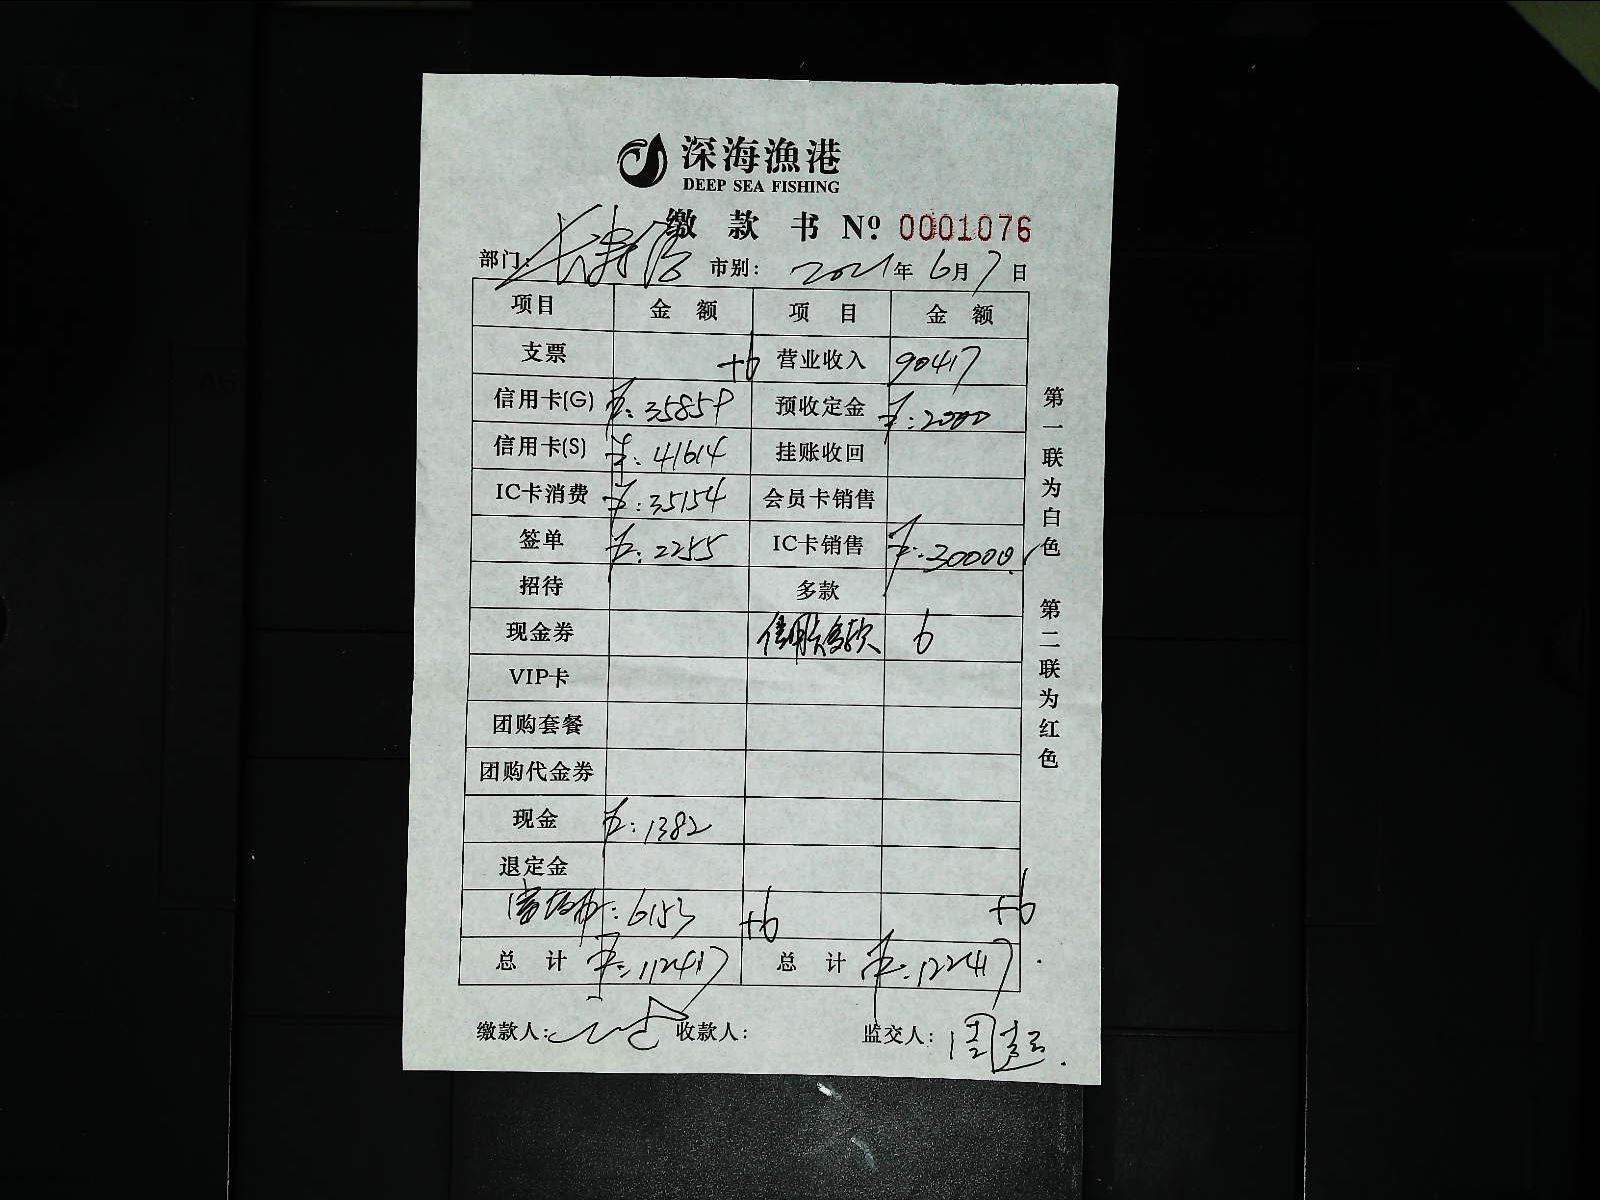 深海漁港
DEEP SEA FISHING
缴 款 书 Nº 0001076
部门： 市别： 2021年 6月7日
项目 金 额 项 目 金 额
支票 +6 营业收入 90417
信用卡(G) 35859 预收定金 2000
信用卡(S) 41614 挂账收回
IC卡消费 35154 会员卡销售
签单 2255 IC卡销售 30000
招待 多款
现金券 信用卡多款 6
VIP卡
团购套餐
团购代金券
现金 1382
退定金
6153 +6 +6
总 计 112417 总 计 122417
缴款人： 收款人： 监交人：周超
第一联为白色 第二联为红色